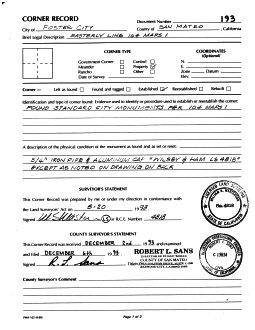 CORNER RECORD
Document Number 193
City of FOSTER CITY County of SAN MATEO, California
Brief Legal Description EASTERLY LINE 104 MAPS 1
CORNER TYPE
COORDINATES
(Optional)
Government Corner Control
Meander Property
Rancho Other
Date of Survey
N.
E.
Zone Datum
Elev.
Corner — Left as found Found and tagged Established Reestablished Rebuilt
Identification and type of corner found: Evidence used to identify or procedure used to establish or reestablish the corner:
FOUND STANDARD CITY MONUMENTS PER 104 MAPS 1
A description of the physical condition of the monument as found and as set or reset:
3/4" IRON PIPE & ALUMINUM CAP "WILSEY & HAM LS 4818"
EXCEPT AS NOTED ON DRAWING ON BACK
SURVEYOR'S STATEMENT
This Corner Record was prepared by me or under my direction in conformance with
the Land Surveyors' Act on 8-20 1993
Signed L.S. or R.C.E. Number 4818
No. 4818
COUNTY SURVEYOR'S STATEMENT
This Corner Record was received DECEMBER 2nd 1993 and examined
and filed DECEMBER 6th 1993
Signed R. L. Sans Title
ROBERT L. SANS
DIRECTOR OF PUBLIC WORKS
COUNTY OF SAN MATEO
REDWOOD CITY, CALIFORNIA
County Surveyor's Comment
Page 1 of 2